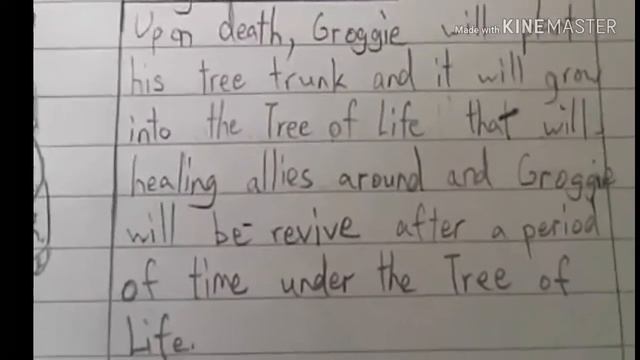 Made with KINEMASTER
Upon death, Groggie will
his tree trunk and it will grow
into the Tree of Life that will
healing allies around and Groggie
will be revive after a period
of time under the Tree of
Life.